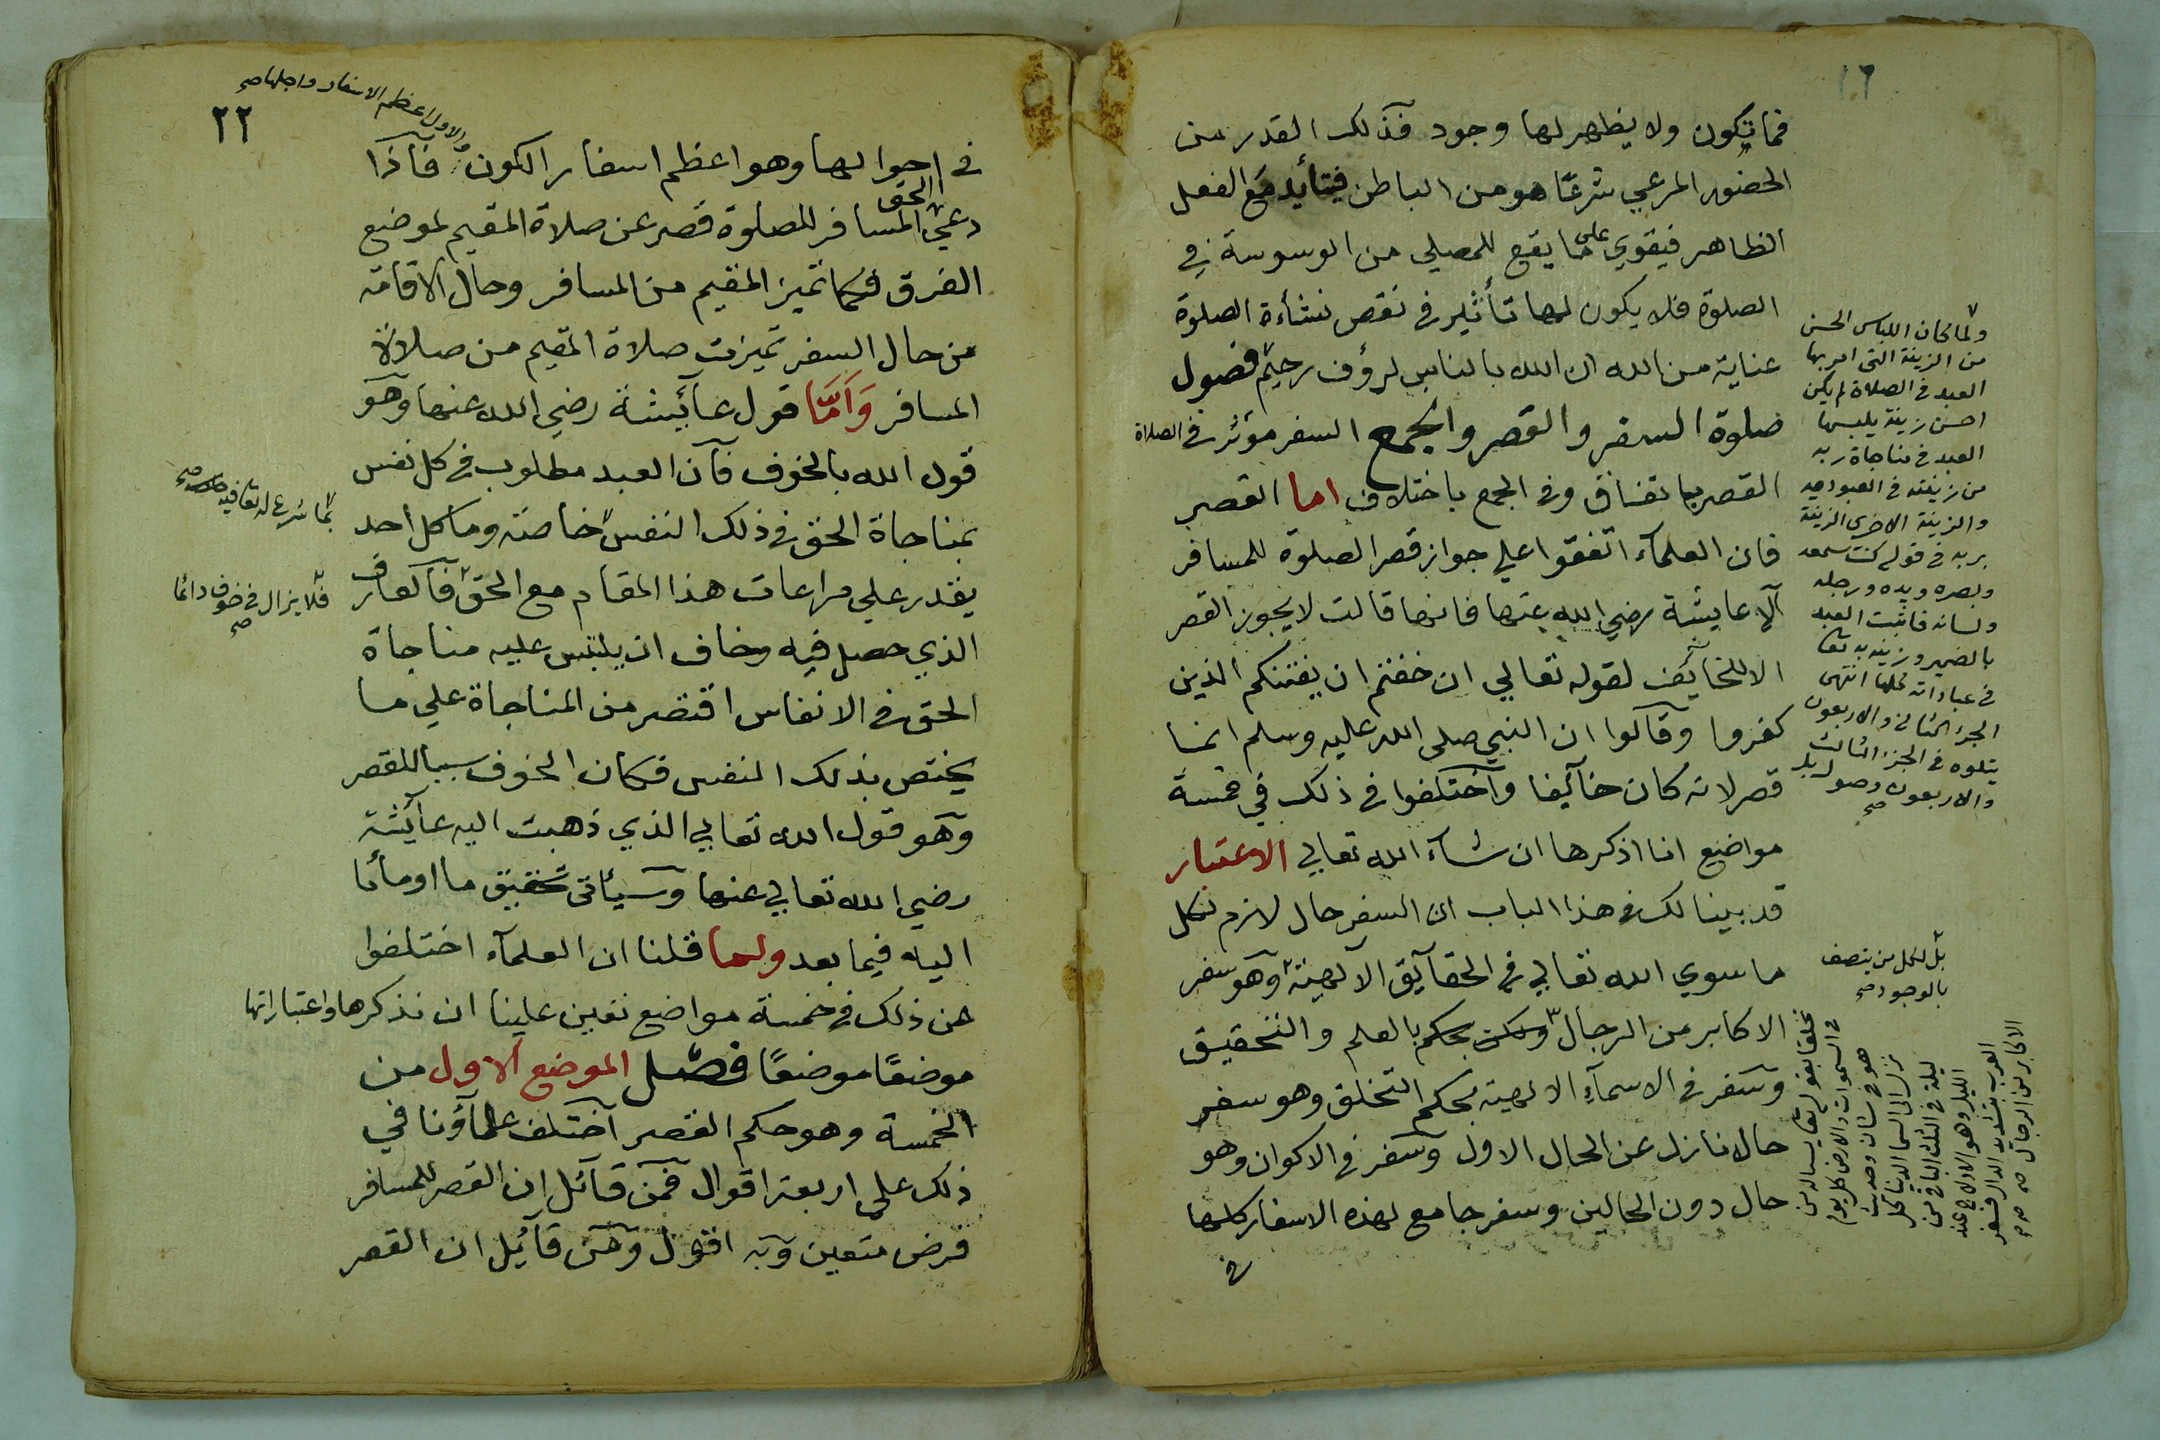 ١٦
فما تكون ولا يظهر لها وجود فذلك القدر من
الحضور المرعي شرعا هو من الباطن فيتأيد مع الفعل
الظاهر فيقوي على ما يقع للمصلي من الوسوسة في
الصلوة فلا يكون لها تأثير في نقص نشأة الصلوة
عناية من الله ان الله بالناس لرؤف رحيم فصول
صلوة السفر والقصر والجمع السفر مؤثر في الصلاة
القصر باتفاق وفي الجمع باختلاف اما القصر
فان العلمآء اتفقوا علي جواز قصر الصلوة للمسافر
الا عايشة رضي الله عنها فانها قالت لا يجوز القصر
الا للخآئف لقوله تعالي ان خفتم ان يفتنكم الذين
كفروا وقالوا ان النبي صلى الله عليه وسلم انما
قصر لانه كان خآئفا واختلفوا في ذلك في خمسة
مواضع انا اذكرها ان شآء الله تعالي الاعتبار
قد بينا لك في هذا الباب ان السفر حال لازم لكل
ما سوي الله تعالي في الحقآئق الآلهية وهو سفر
الاكابر من الرجال ولكن بحكم بالعلم والتحقيق
وسفر في الاسمآء الالهية بحكم التخلق وهو سفر
حال نازل عن الحال الاول وسفر في الاكوان وهو
حال دون الحالين وسفر جامع لهذه الاسفار كلها
في
ولما كان اللباس الحسن
من الزينة التي امر بها
العبد في الصلاة لم يكن
احسن زينة يلبسها
العبد في مناجاة ربه
من زينته في العبودية
والزينة الاخرى الزينة
بربه في قوله كنت سمعه
وبصره ويده ورجله
ولسانه فاثبت العبد
بالضمير وزينه به تعا
في عباداته كلها انتهى
الجزء الثاني والاربعون
يتلوه في الجزء الثالث
والاربعون وصول
صح
بل لكل من يتصف
بالوجود صح
تخلقا بقوله تعا يساله من
في السموات والارض كل يوم
هو في شان وحديث
نزل الى السما الدنيا كل
ليلة في الثلث الباقي من
الليل وهو الاول عند
العرب
الاكابر من الرجال صح
٢٢
والاول اعظم الاسفار واجلها صح
في احوالها وهو اعظم اسفار الكون فاذا
دعي الحق المسافر للصلوة قصر عن صلاة المقيم لموضع
الفرق فكما تميز المقيم من المسافر وحال الاقامة
من حال السفر تميزت صلاة المقيم من صلاة
المسافر وَأَمَّا قول عآئشة رضي الله عنها وهو
قول الله بالخوف فان العبد مطلوب في كل نفس
بمناجاة الحق في ذلك النفس خاصة وما كل احد
يقدر علي مراعات هذا المقام مع الحق فالعارف
الذي حصل فيه وخاف ان يلتبس عليه مناجاة
الحق في الانفاس اقتصر من المناجاة علي ما
يختص بذلك النفس فكان الخوف سببا للقصر
وهو قول الله تعالي الذي ذهبت اليه عآئشة
رضي الله تعالي عنها وسيأتى تحقيق ما اومأنا
اليه فيما بعد ولما قلنا ان العلمآء اختلفوا
من ذلك في خمسة مواضع تعين علينا ان نذكرها واعتباراتها
موضعًا موضعًا فصل الموضع الاول من
الخمسة وهو حكم القصر اختلف علمآؤنا في
ذلك على اربعة اقوال فمن قآئل ان القصر للمسافر
فرض متعين وبه اقول ومن قآئل ان القصر
بما شرع له تعا فيه صح
فلا يزال في خوف دائما
صح